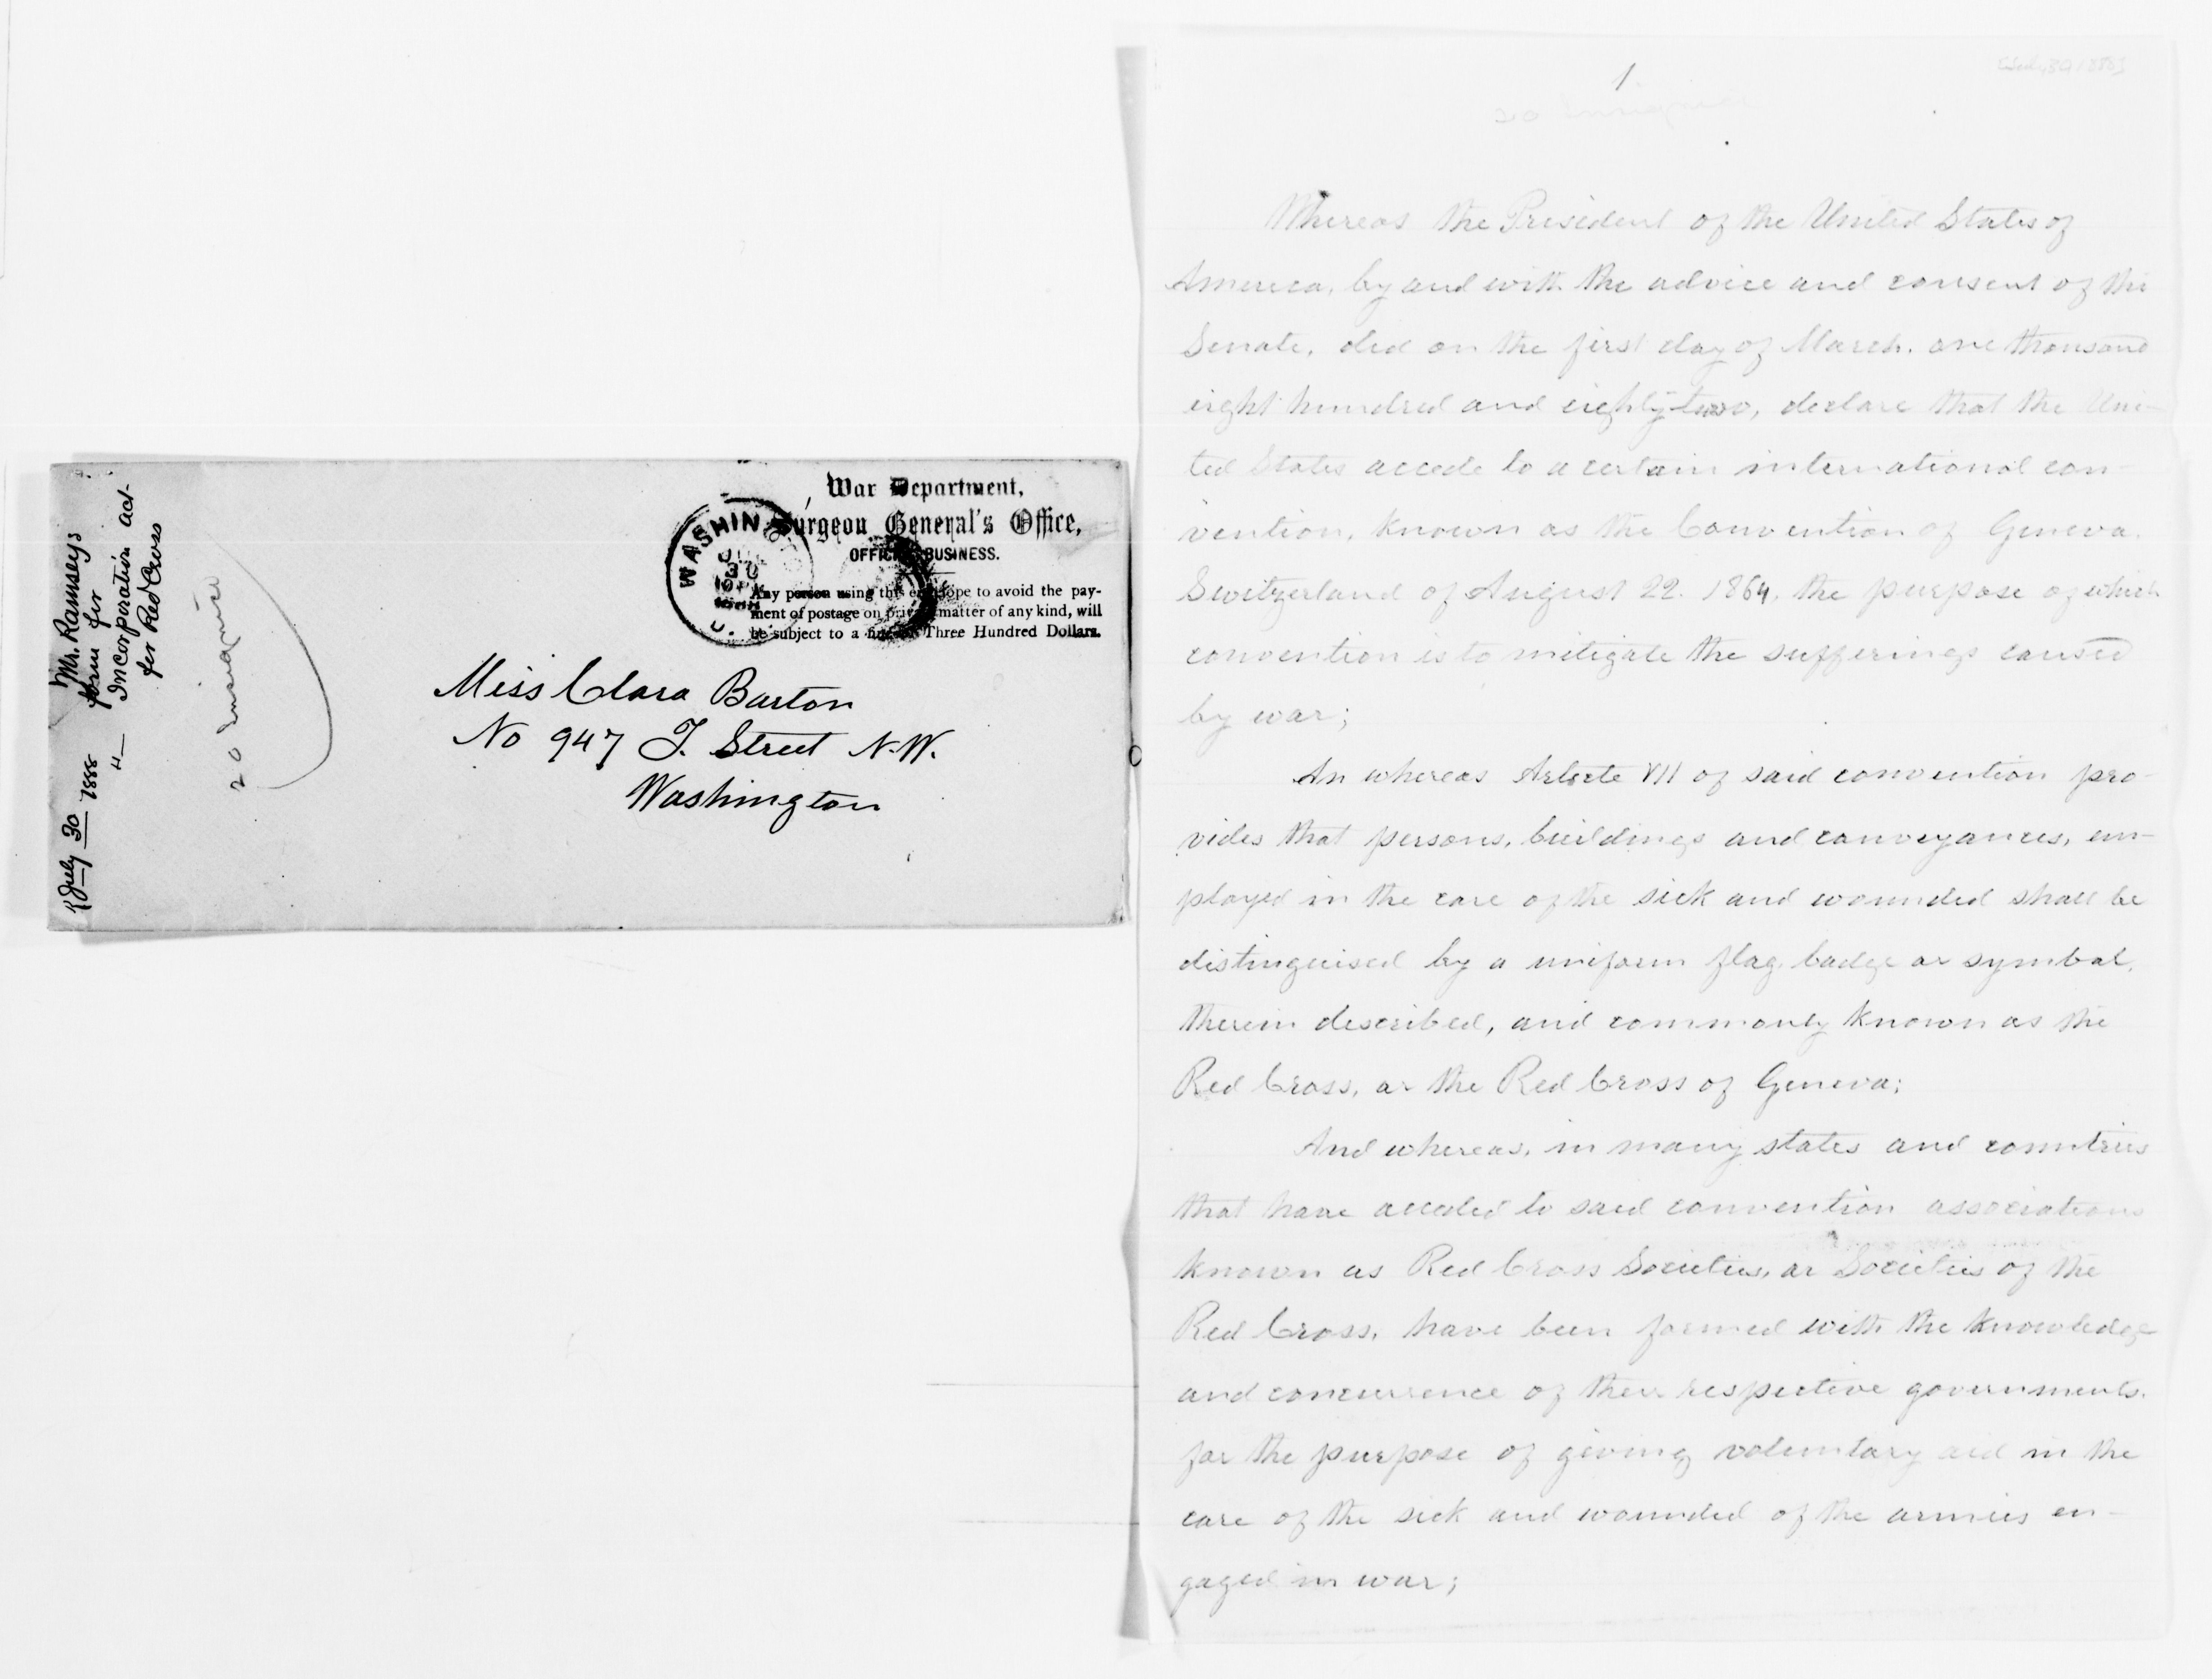 War Department,
Surgeon General's Office,
OFFICIAL BUSINESS.
Any person using this envelope to avoid the pay-
ment of postage on private matter of any kind, will
be subject to a fine of Three Hundred Dollars.
WASHIN
30
Miss Clara Barton
No 947 T. Street N.W.
Washington
R July 30 1888
Mr. Ramseys
form for
Incorporation act
for Red Cross
20
1
Whereas the President of the United States of
America, by and with the advice and consent of the
Senate, did on the first day of March, one thousand
eight hundred and eighty-two, declare that the Uni-
ted States accede to a certain international con-
vention, known as the Convention of Geneva,
Switzerland of August 22. 1864, the purpose of which
convention is to mitigate the sufferings caused
by war;
An whereas Article VII of said convention pro-
vides that persons, buildings and conveyances, em-
ployed in the care of the sick and wounded shall be
distinguised by a uniform flag, badge or symbol,
therein described, and commonly known as the
Red Cross, or the Red Cross of Geneva;
And whereas, in many states and countries
that have acceded to said convention associations
known as Red Cross Societies, or Societies of the
Red Cross, have been formed with the knowledge
and concurrence of their respective governments,
for the purpose of giving voluntary aid in the
care of the sick and wounded of the armies en-
gaged in war;